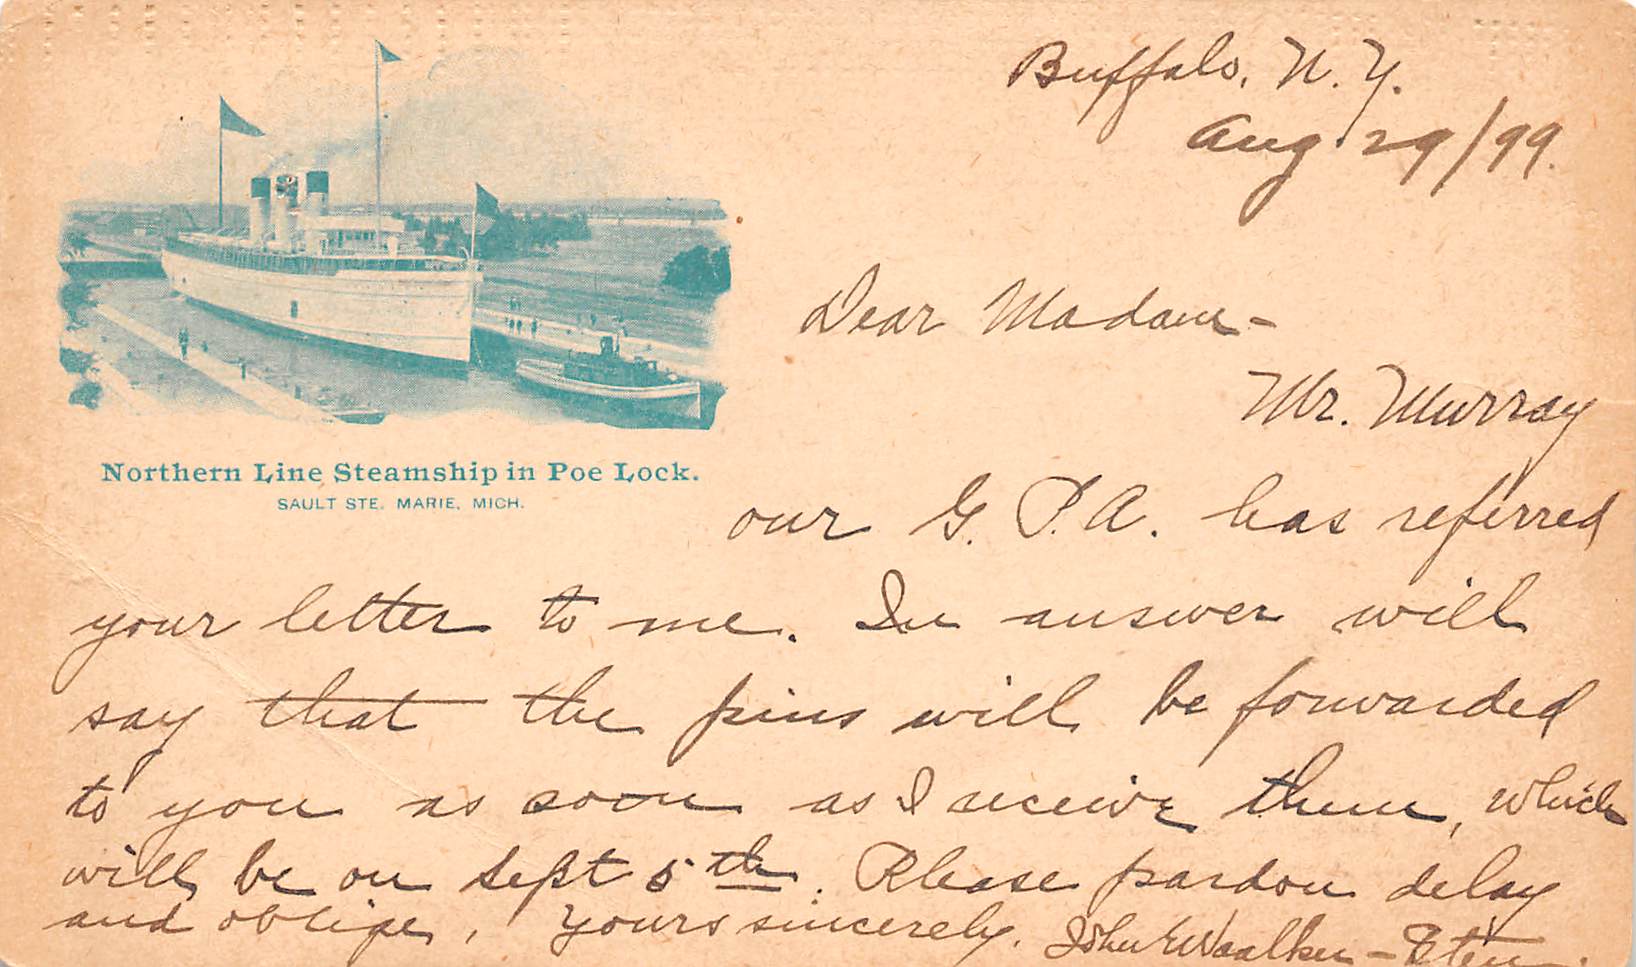 Buffalo, N.Y.
Aug 29/99.
Northern Line Steamship in Poe Lock.
SAULT STE. MARIE, MICH.
Dear Madam-
Mr. Murray
our G. P. A. has referred
your letter to me. In answer will
say that the pins will be forwarded
to you as soon as I receive them, which
will be on Sept 5th. Please pardon delay
and oblige, Yours sincerely. John E